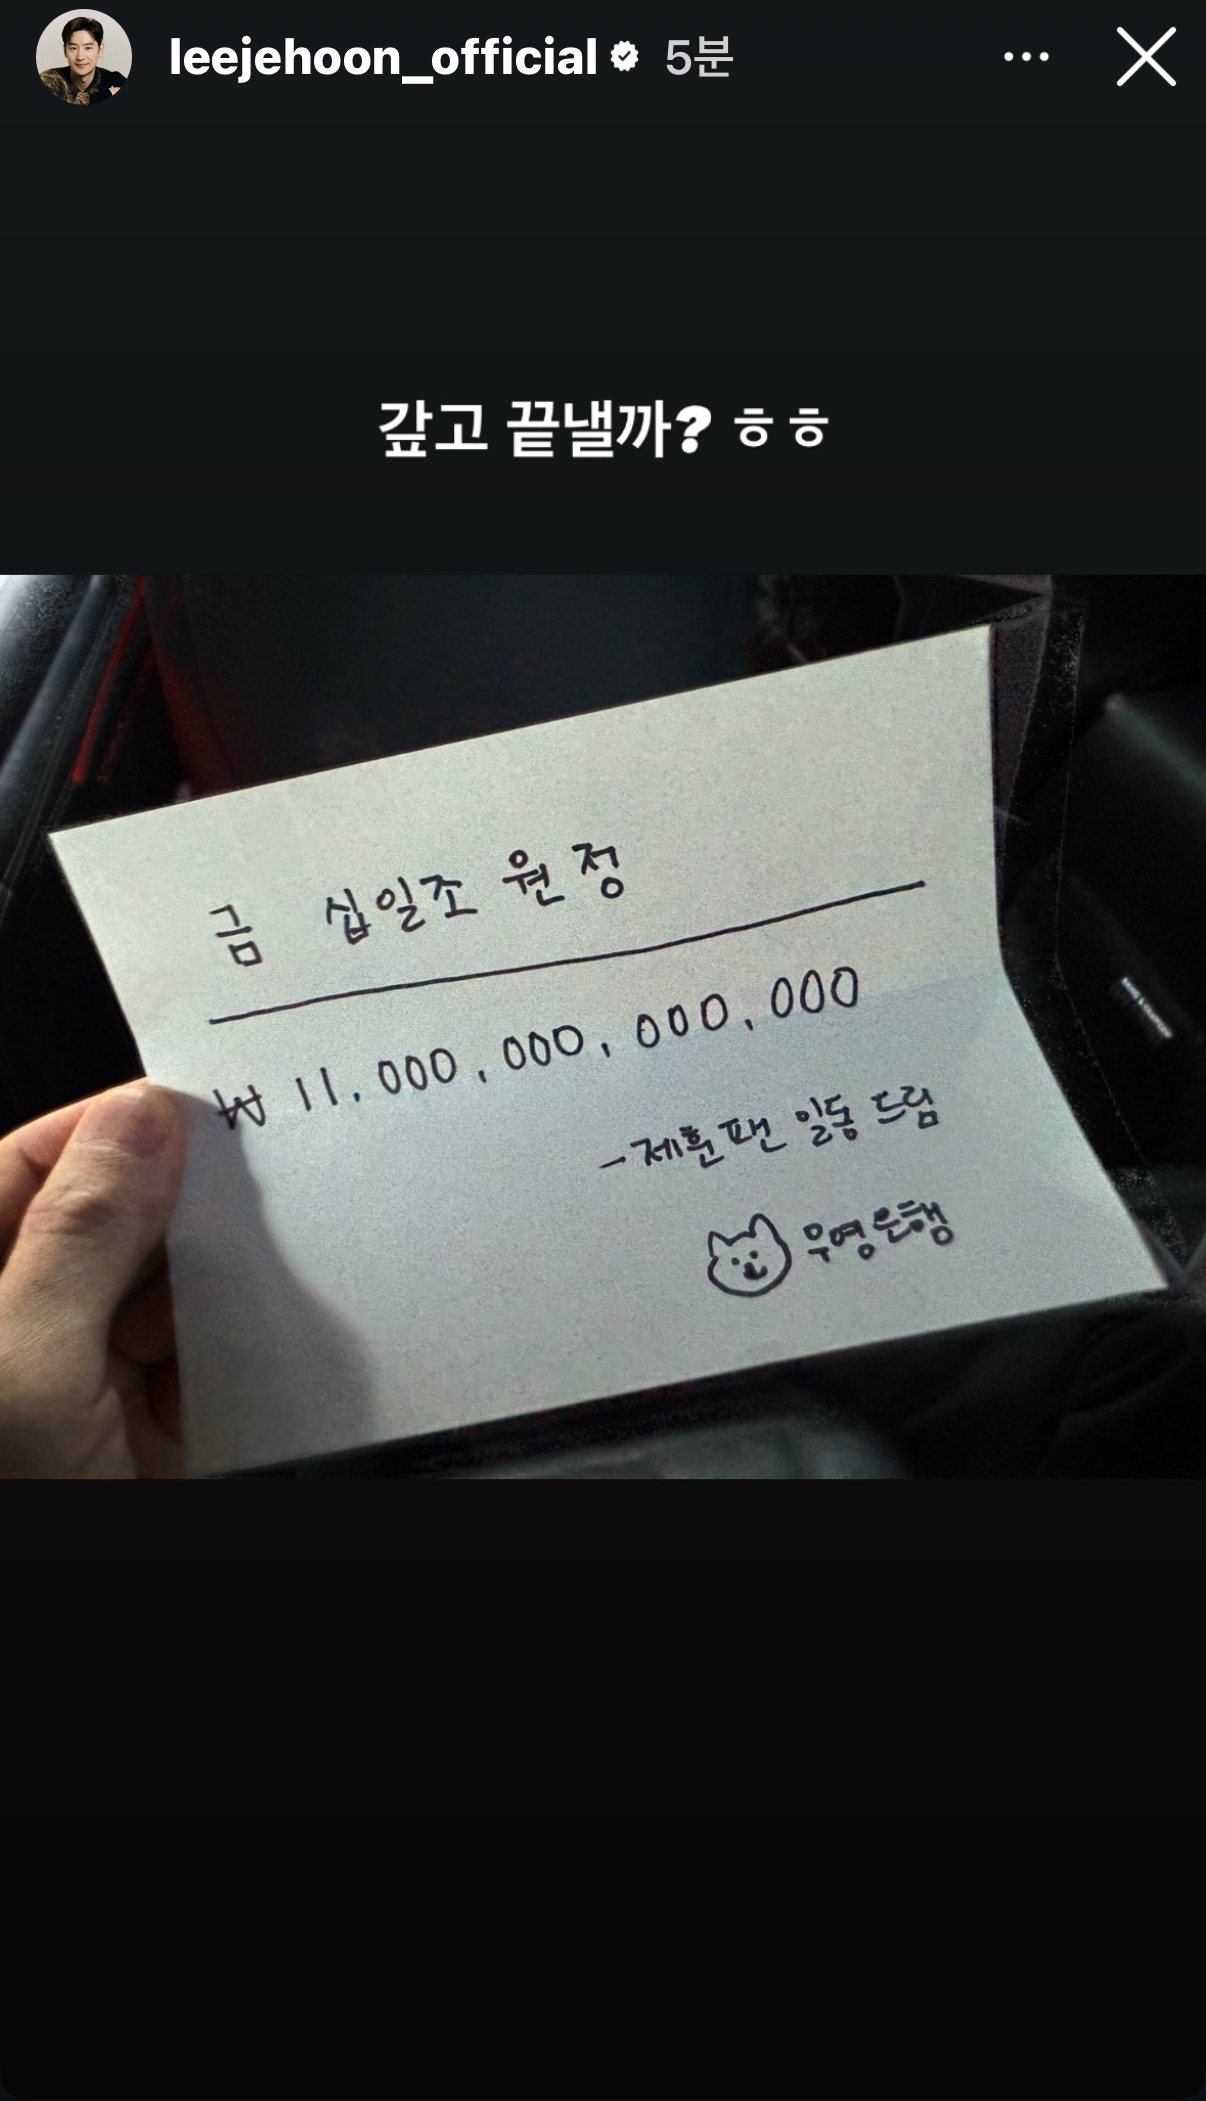 leejehoon_official 5분
갚고 끝낼까? ㅎㅎ
금 십일조 원정
₩ 11,000,000,000,000
-제훈팬 일동 드림
우영은행